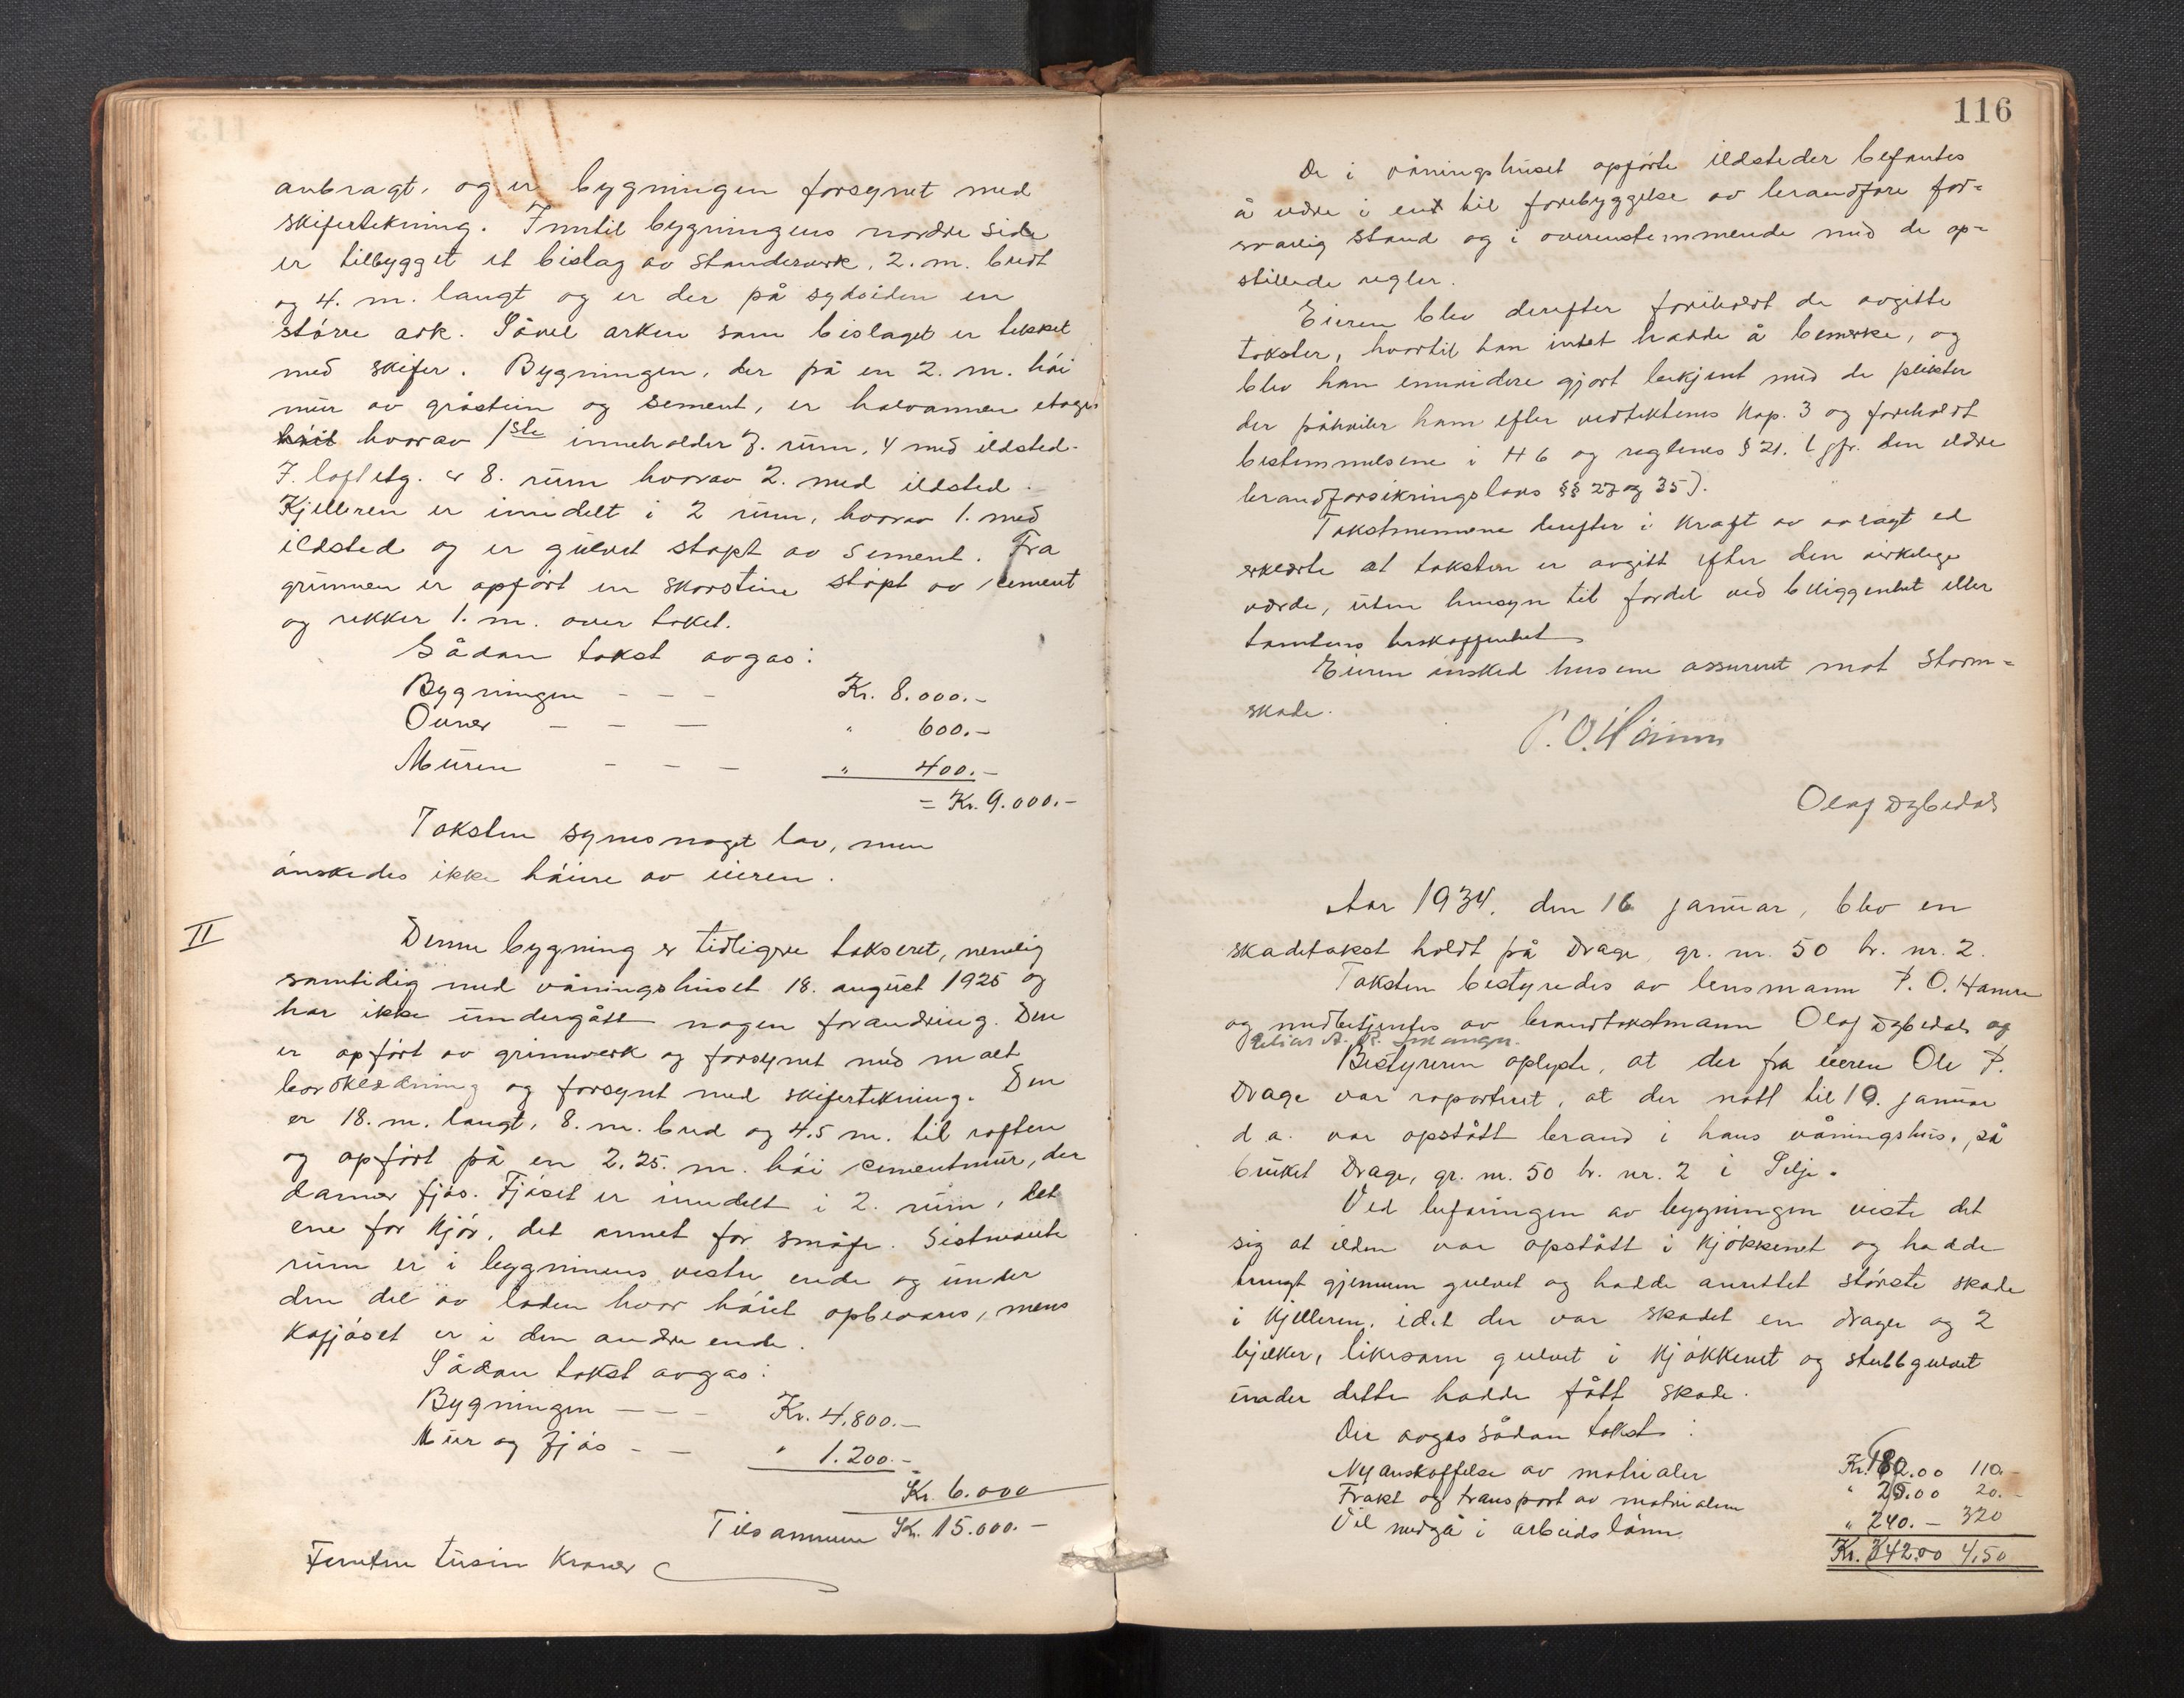 anbragt, og er bygningen forsynet med
skifertekning. Inntil bygningens nordre side
er tilbygget et bislag av standerverk, 2. m. bredt
og 4. m. langt og er der på sydsiden en
større ark. Såvel arken som bislaget er tekket
med skifer. Bygningen, der på en 2. m. høi
mur av gråstein og sement, er halvannen etages
høit hvorav 1ste inneholder 7. rum, 4 med ildsted.
I loftetg. er 8. rum hvorav 2. med ildsted.
Kjelleren er inndelt i 2 rum, hvorav 1. med
ildsted og er gulvet støpt av sement. Fra
grunnen er opført en skorstein støpt av cement
og rekker 1. m. over taket.
Sådan takst avgas:
Bygningen - - - Kr. 8.000.-
Ovner - - - " 600.-
Muren - - - " 400.-
= Kr. 9.000.-
Taksten synes noget lav, men
ønskedes ikke høiere av eieren.
II Denne bygning er tidligere taksert, nemlig
samtidig med våningshuset 18. august 1925 og
har ikke undergått nogen forandring. Den
er opført av grinnverk og forsynet med malt
bordklædning og forsynt med skifertekning. Den
er 18. m. langt, 8. m. bred og 4.5 m. til raften
og opført på en 2.25. m. høi cementmur, der
danner fjøs. Fjøset er inndelt i 2. rum, det
ene for kjør, det annet for småfe. Sistnevnte
rum er i bygninens vestre ende og under
den del av løden hvor høiet opbevares, mens
kufjøset er i den andre ende.
Sådan takst avgas:
Bygningen - - - Kr. 4.800.-
Mur og fjøs - - " 1.200.-
Kr. 6.000
Tilsammen Kr. 15.000.-
Femten tusin Kroner
116
De i våningshuset opførte ildsteder befantes
å være i ent til forebyggelse av brandfare for=
svarlig stand og i overenstemmende med de op=
stillede regler.
Eieren blev derefter foreholdt de avgitte
takster, hvortil han intet hadde å bemerke, og
blev han ennvidere gjort bekjent med de plikter
der påhviler ham efter vedtektenes kap. 3 og foreholdt
bestemmelsene i H 6 og reglenes § 21. (jfr. den eldre
brandforsikringslovs §§ 27 og 35).
Takstmennene derefter i kraft av avlagt ed
erklærte at taksten er avgitt efter den virkelige
værde, uten hensyn til fordel ved beliggenhet eller
tomtens beskaffenhet
Eieren ønsked husene assureret mot storm=
skade.
P. O. Hamre
Olaf Dybedal
Aar 1934. den 16 januar, blev en
skadetakst holdt på Drage, gr. nr. 50 br. nr. 2.
Taksten bestyredes av lensmann P. O. Hamre
og medbetjentes av brandtakstmann Olaf Dybedal og
A. R.
Bestyreren oplyste, at der fra eieren Ole P.
Drage var raportert, at der natt til 10. januar
d a. var opstått brand i hans våningshus, på
bruket Drage, gr. nr. 50 br. nr. 2 i Selje.
Ved befaringen av bygningen viste det
sig at ilden var opstått i kjøkkenet og hadde
trengt gjennem gulvet og hadde anrettet største skade
i kjelleren, idet der var skadet en drager og 2
bjelker, likesom gulvet i kjøkkenet og stubbgulvet
under dette hadde fått skade.
Der avgas sådan takst:
Nyanskaffelse av matrialer Kr. 82.00 110.-
Frakt og transport av matrialene " 20.00 20.-
Vil medgå i arbeidslønn. " 240.- 320
Kr. 342.00 4,50